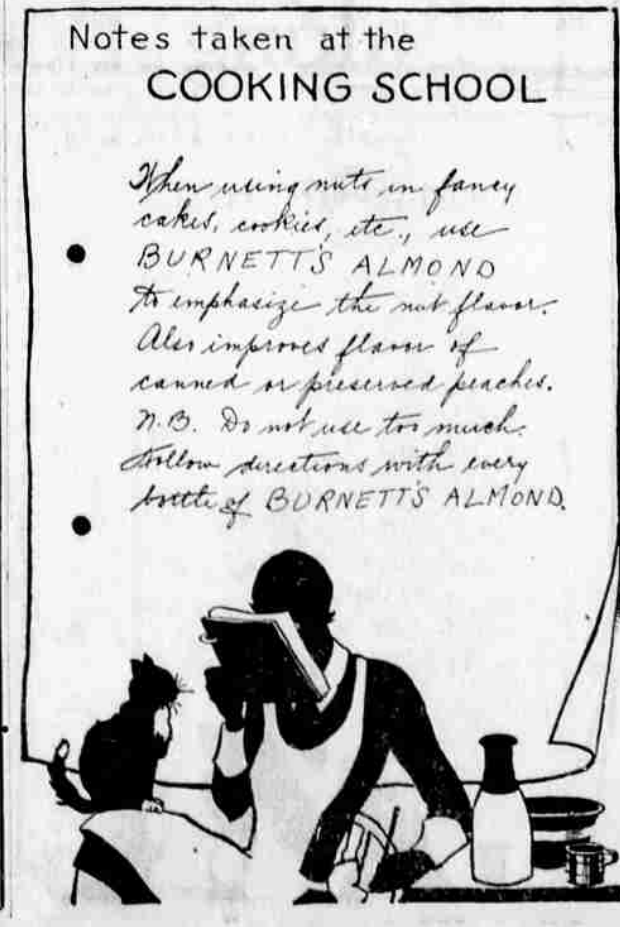 Notes taken at the
COOKING SCHOOL
When using nuts in fancy
cakes, cookies, etc., use
BURNETT'S ALMOND
to emphasize the nut flavor.
Also improves flavor of
canned or preserved peaches.
N.B. Do not use too much.
Follow directions with every
bottle of BURNETT'S ALMOND.